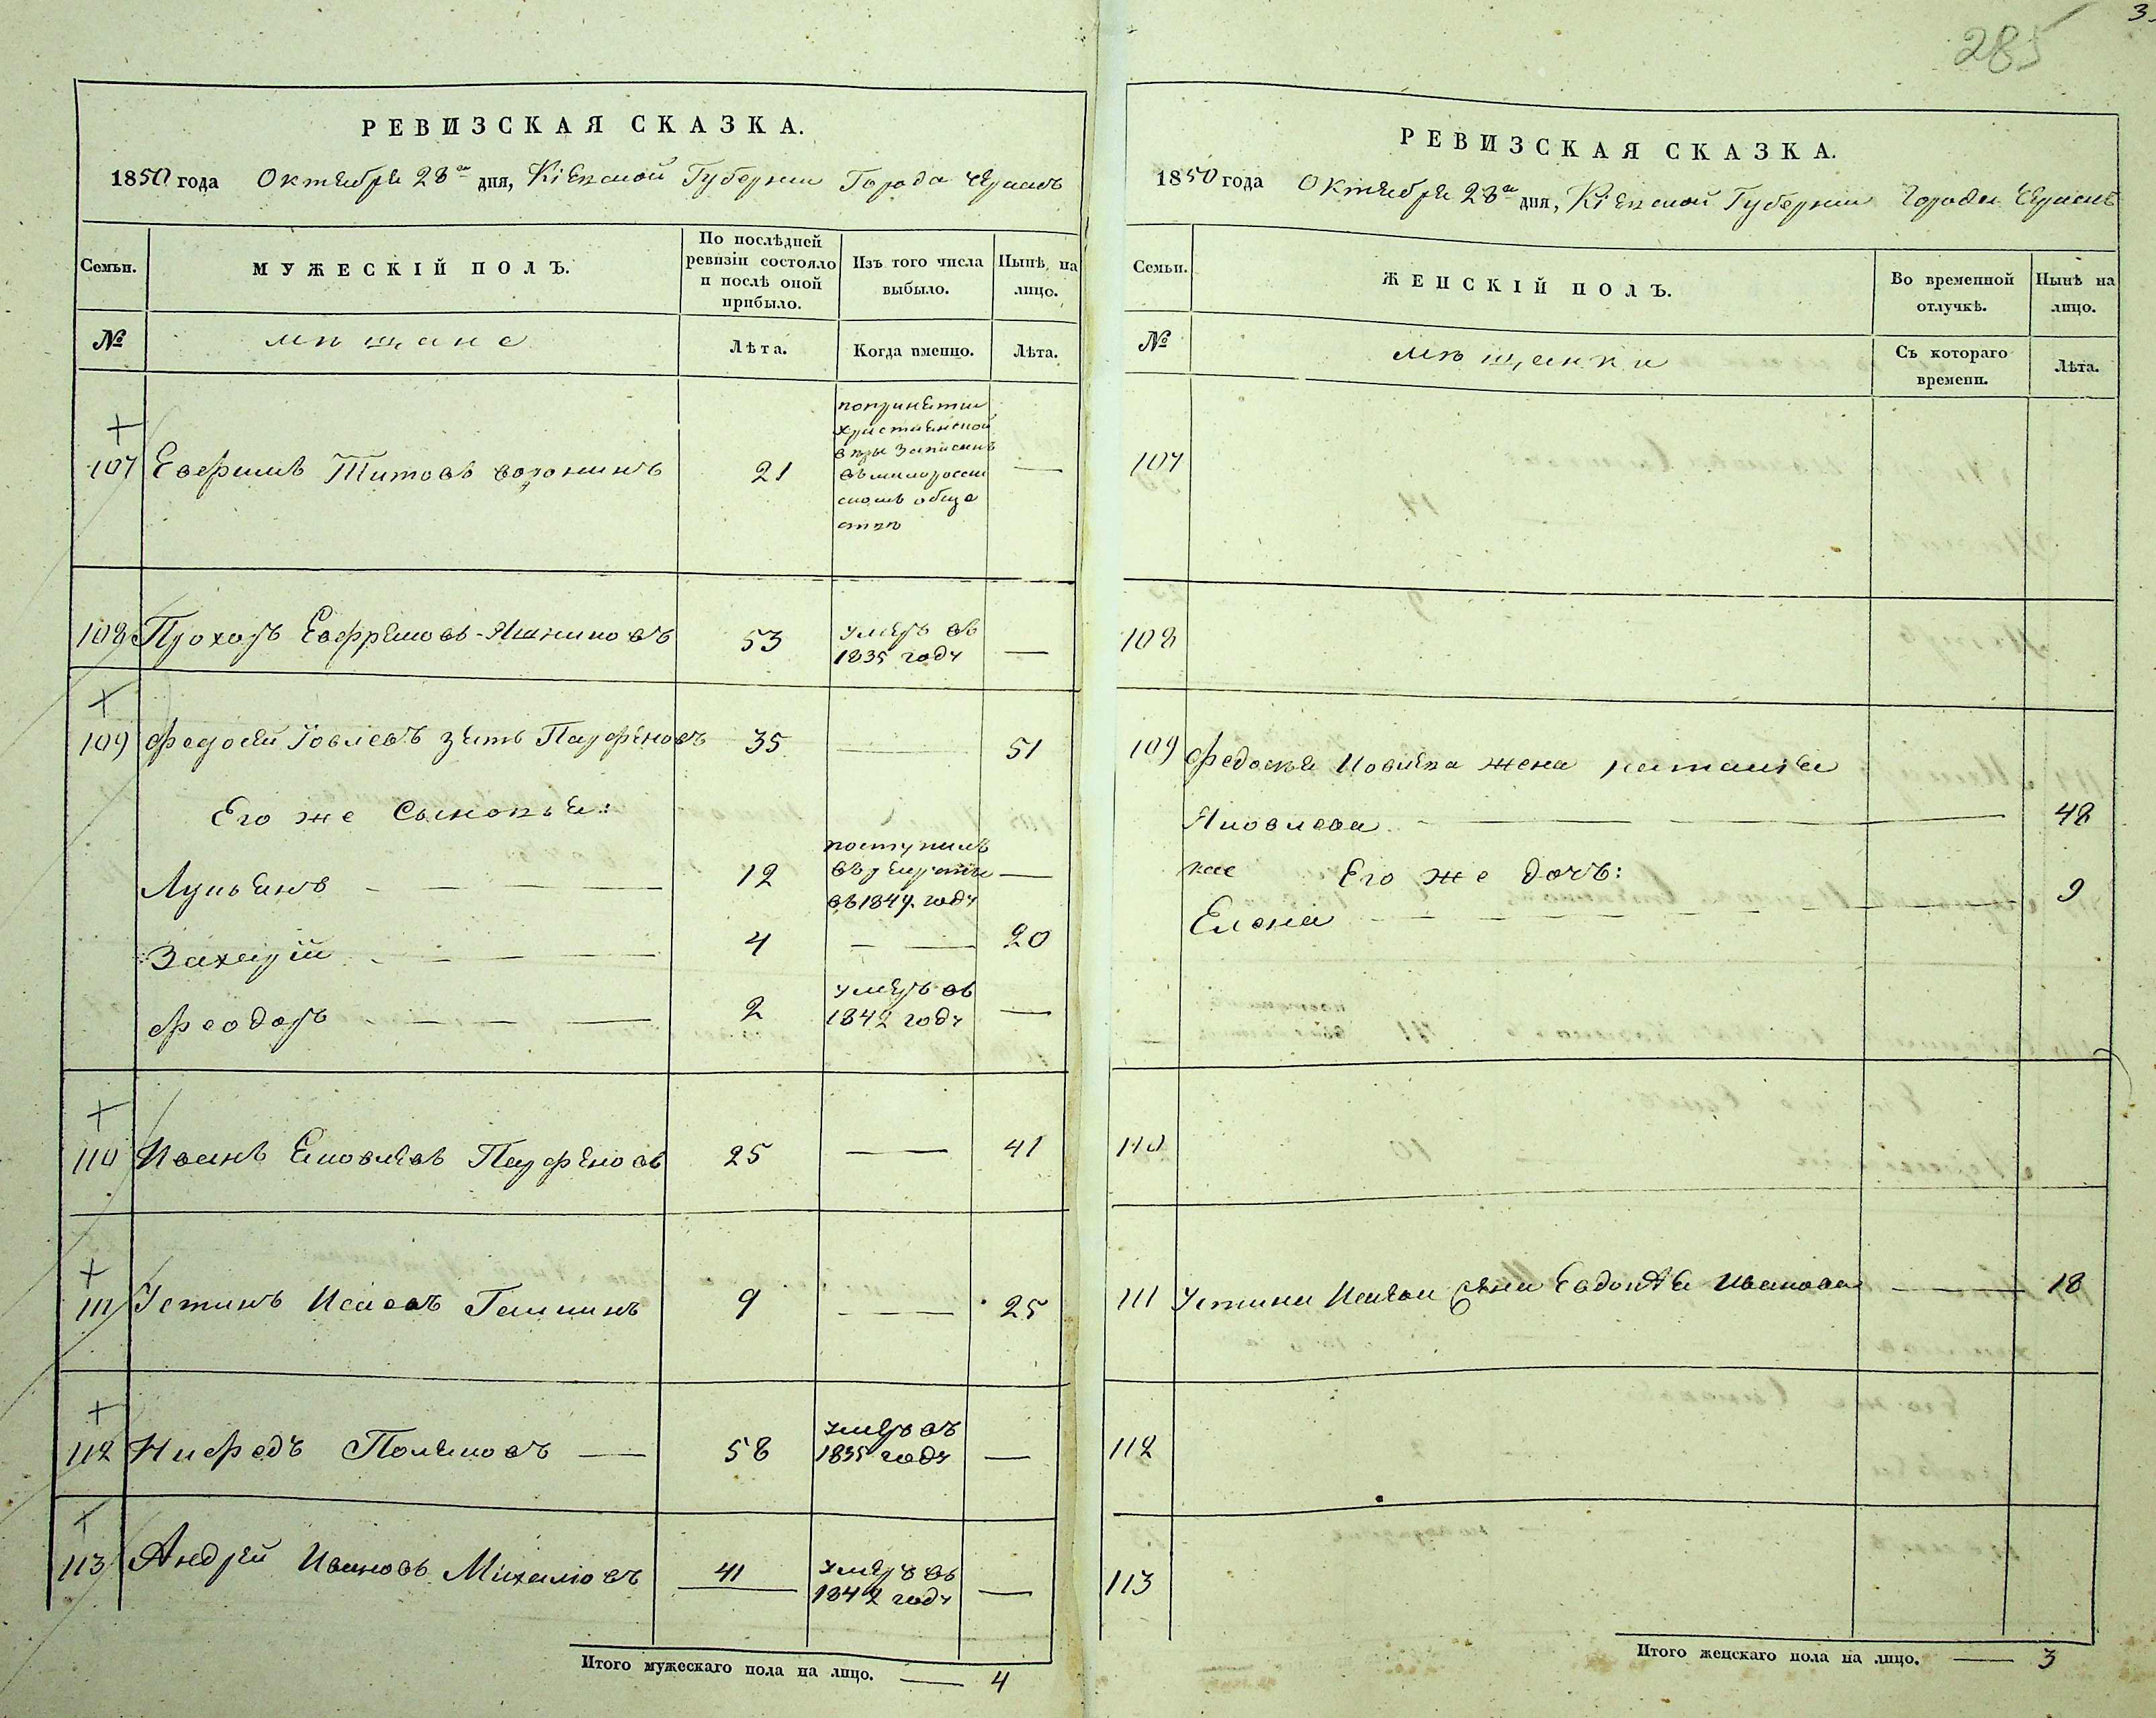 3.
285
РЕВИЗСКАЯ СКАЗКА.
1850 года Октября 28го дня, Кіевской Губерніи Города
Семьи.
МУЖЕСКІЙ ПОЛЪ.
По послѣдней ревизіи состояло и послѣ оной прибыло.
Изъ того числа выбыло.
Нынѣ на лицо.
№
мѣщане
Лѣта.
Когда именно.
Лѣта.
107 Евфимъ Титовъ воронинъ 21 —
попринятіи
христіянской
вѣры записанъ
въ малоросси
скомъ обще
ствѣ
108 Прохоръ Ефремовъ 53 —
умеръ въ
1835 году
109 Федосей Іовлевъ зять Парфеновъ 35 — 51
Его же Сыновья:
Лукьянъ — — — 12 —
поступилъ
въ рекруты
въ 1844 году
Захарій — — — 4 — — 20
Феодоръ — — — 2 —
умеръ въ
1842 году
110 Иванъ Яковлевъ Парфеновъ 25 — 41
111 Устинъ Исаевъ 9 — — — 25
112 — 58 —
умеръ въ
1835 году
113 Андрей Ивановъ Михайловъ 41 —
умеръ въ
1842 году
Итого мужескаго пола на лицо. — 4
РЕВИЗСКАЯ СКАЗКА.
1850 года Октября 28го дня, Кіевской Губерніи Города
Семьи.
ЖЕНСКІЙ ПОЛЪ.
Во временной отлучкѣ.
Нынѣ на лицо.
№
мѣщанки
Съ котораго времени.
Лѣта.
107
108
109 Федосея Иовлева жена наталия
Яковлева — — — 48
Его же дочь:
Елена — — — 9
110
111 Устина Исаева жена Евдокія Иванова — 18
112
113
Итого женскаго пола на лицо. — 3